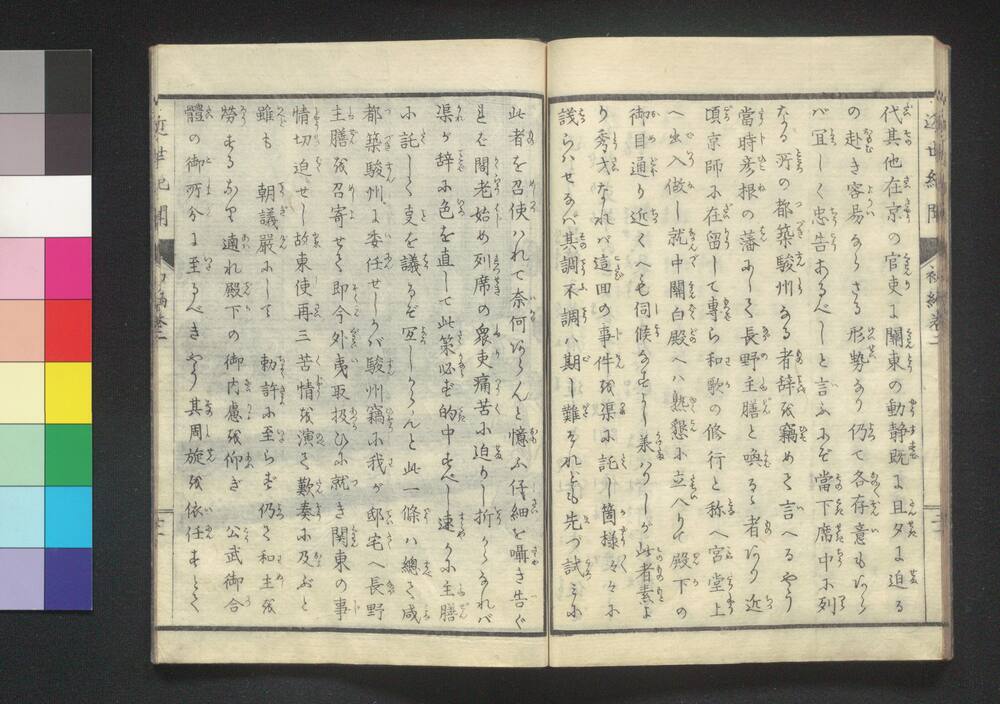 代其他在京の官吏に關東の動静既に旦夕に迫る
の赴き容易ならさる形勢なり仍て各存意もあら
バ宜しく忠告あるべしと言ふにぞ當下席中に列
なる所の都築駿州なる者辞を竊めて言へるやう
當時彦根の藩にして長野主膳と喚るゝ者あり近
頃京師に在留して専ら和歌の修行と称へ宮堂上
へ出入做し就中關白殿へハ熟懇に立入りて殿下の
御目通り近くへも伺候なすよし兼ハりしが此者素よ
り秀才なれバ這回の事件を渠に託し箇様々々に
議らハせるべ其調不調ハ期し難けれども先づ試みに
此者を召使ハれて奈何あらんと憶ふ仔細を囁き告ぐ
れバ間老始め列席の衆吏痛苦に迫りし折からなれバ
渠が辞に色を直して此策必ず的中すべし速かに主膳
に託して事を議るぞ宜しからんと此一條ハ總て咸
都築駿州に委任せしかバ駿州竊に我が邸宅へ長野
主膳を召寄せて即今外夷取扱ひに就き関東の事
情切迫せし故東使再三苦情を演て歎奏に及ぶと
雖も 朝議嚴にして 勅許に至らず仍て和主を
勞するあり適れ殿下の御内慮を仰ぎ 公武御合
體の御所分に至るべきやう其周旋を依任すとて
近世紀聞
初編巻二